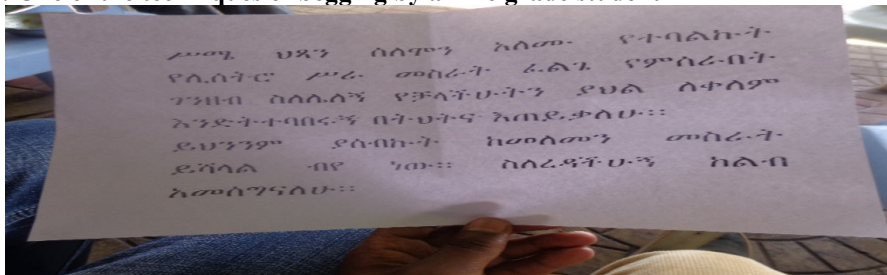 ሥሜ ህፃን ሰለሞን አለሙ የተባልኩት
የሊስትሮ ሥራ መስራት ፈልጌ የምሰራበት
ገንዘብ ስለሌለኝ የቻላችሁትን ያህል ለቀለም
እንድትተባበሩኝ በትህትና እጠይቃለሁ።
ይህንንም ያሰብኩት ከመለመን መስራት
ይሻላል ብየ ነው። ስለረዳችሁኝ ከልብ
አመሰግናለሁ።